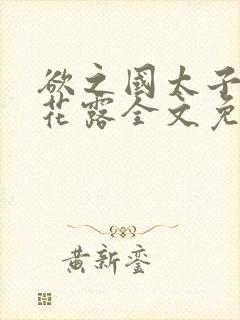 欲之國太子
花露全文免
黄新銮